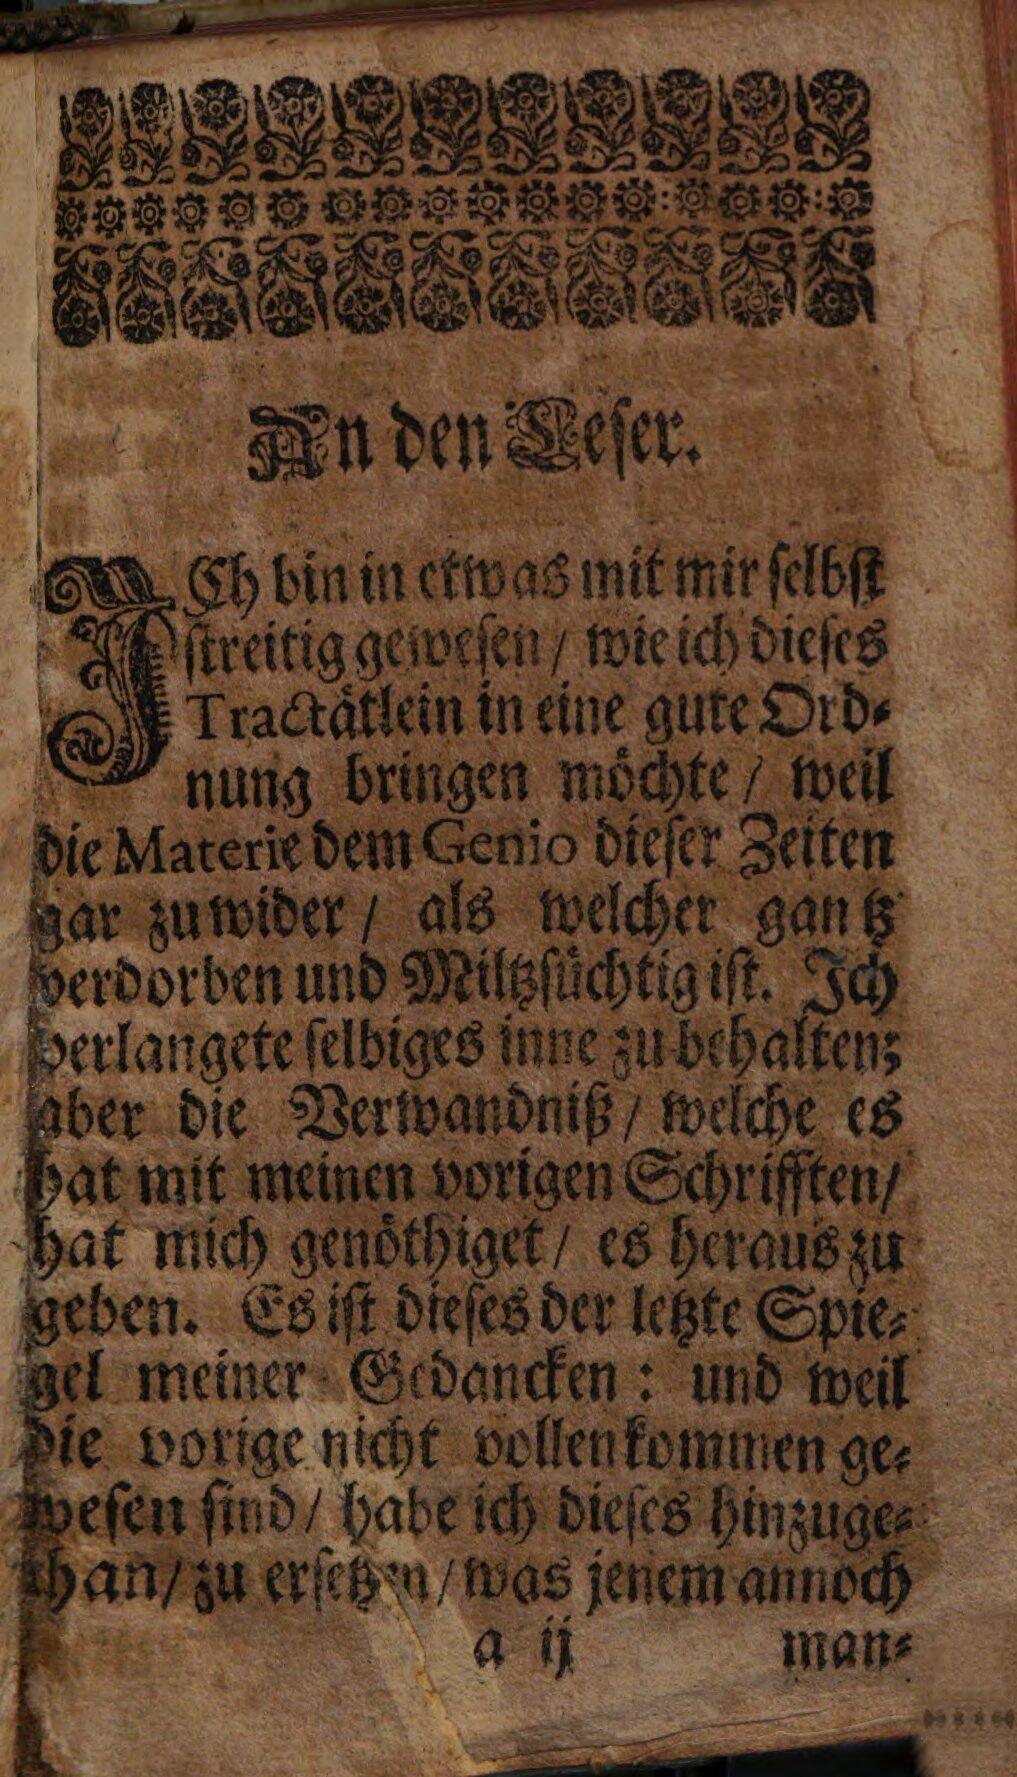 An den Leser.
JCh bin in etwas mit mir selbst
streitig gewesen / wie ich dieses
Tractätlein in eine gute Ord-
nung bringen möchte / weil
die Materie dem Genio dieser Zeiten
gar zuwider / als welcher gantz
verdorben und Miltzsüchtig ist. Ich
verlangete selbiges inne zu behalten;
aber die Verwandniß / welche es
hat mit meinen vorigen Schrifften /
hat mich genöthiget / es heraus zu
geben. Es ist dieses der letzte Spie-
gel meiner Gedancken : und weil
die vorige nicht vollenkommen ge-
wesen sind / habe ich dieses hinzuge-
than / zu ersetzen / was jenem annoch
a ij man-